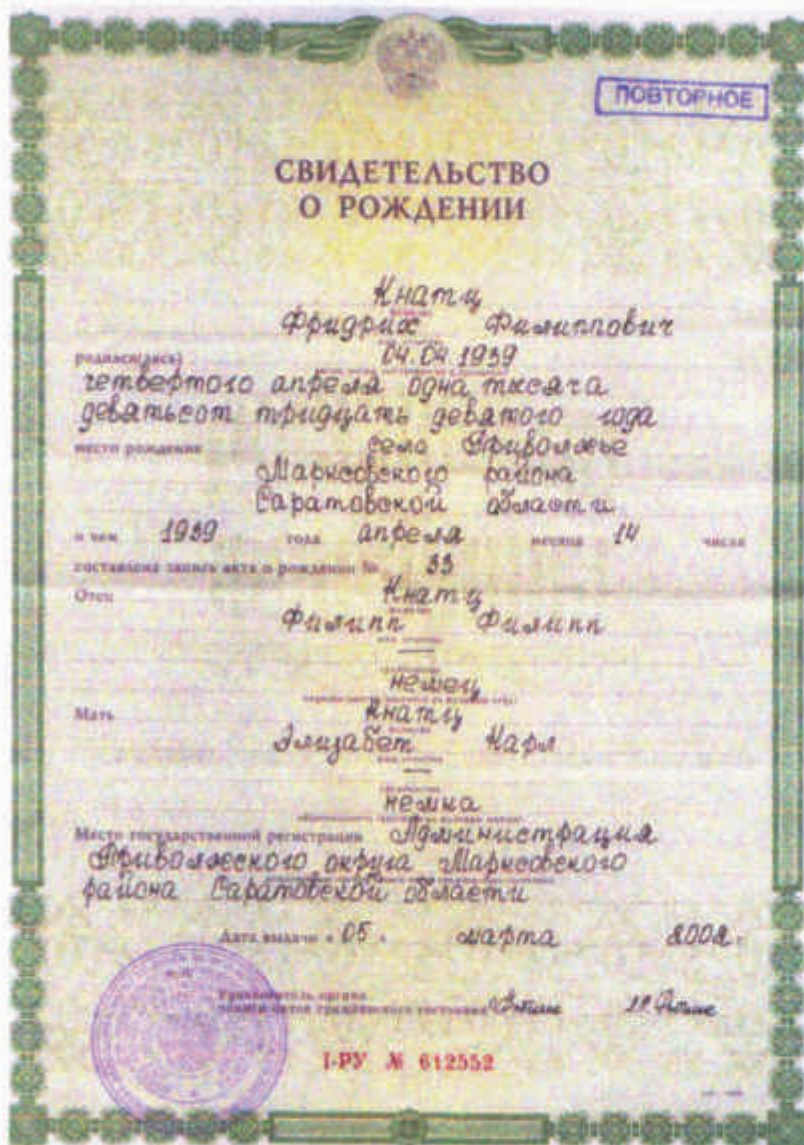 ПОВТОРНОЕ
СВИДЕТЕЛЬСТВО
О РОЖДЕНИИ
Кнатц
Фридрих Филиппович
родился(лась) 04.04.1939
четвертого апреля одна тысяча
девятьсот тридцать девятого года
место рождения село Приволжье
Марксовского района
Саратовской области
о чем 1939 года апреля месяца 14 числа
составлена запись акта о рождении № 33
Отец Кнатц
Филипп Филипп
—
немец
Мать Кнатц
Элизабет Карл
—
немка
Место государственной регистрации Администрация
Приволжского округа Марксовского
района Саратовской области
Дата выдачи « 05 » марта 2002 г.
Руководитель органа
записи актов гражданского состояния
I-РУ № 612552